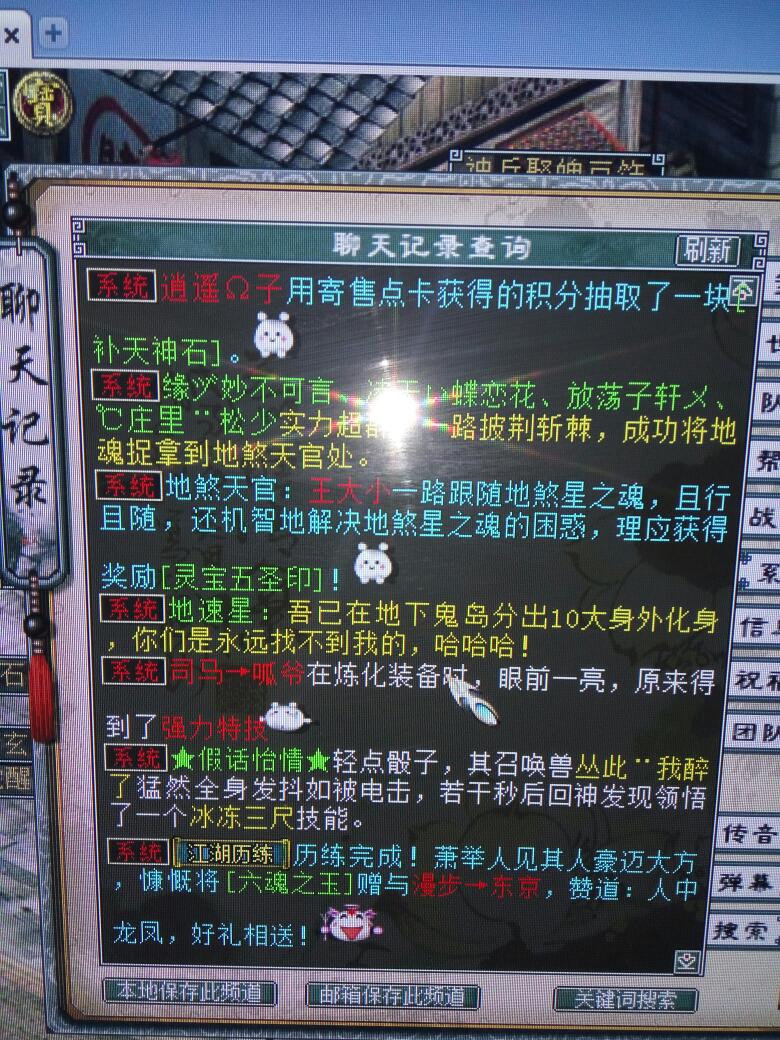 寶
聊天记录查询
刷新
聊天记录
系统 逍遥Ω子用寄售点卡获得的积分抽取了一块[
补天神石]。
系统 缘ツ妙不可言、 蝶恋花、放荡子轩メ、
℃庄里¨松少实力超群 路披荆斩棘，成功将地
魂捉拿到地煞天官处。
系统 地煞天官：王大小一路跟随地煞星之魂，且行
且随，还机智地解决地煞星之魂的困惑，理应获得
奖励[灵宝五圣印]！
系统 地速星：吾已在地下鬼岛分出10大身外化身
，你们是永远找不到我的，哈哈哈！
系统 司马→呱爷在炼化装备时，眼前一亮，原来得
到了强力特技
系统 ★假话怡情★轻点骰子，其召唤兽丛此¨我醉
了猛然全身发抖如被电击，若干秒后回神发现领悟
了一个冰冻三尺技能。
系统 江湖历练 历练完成！萧举人见其人豪迈大方
，慷慨将[六魂之玉]赠与漫步→东京，赞道：人中
龙凤，好礼相送！
本地保存此频道
邮箱保存此频道
关键词搜索
队
帮
战
系
信
祝福
团队
传音
弹幕
搜索
石
玄
醒